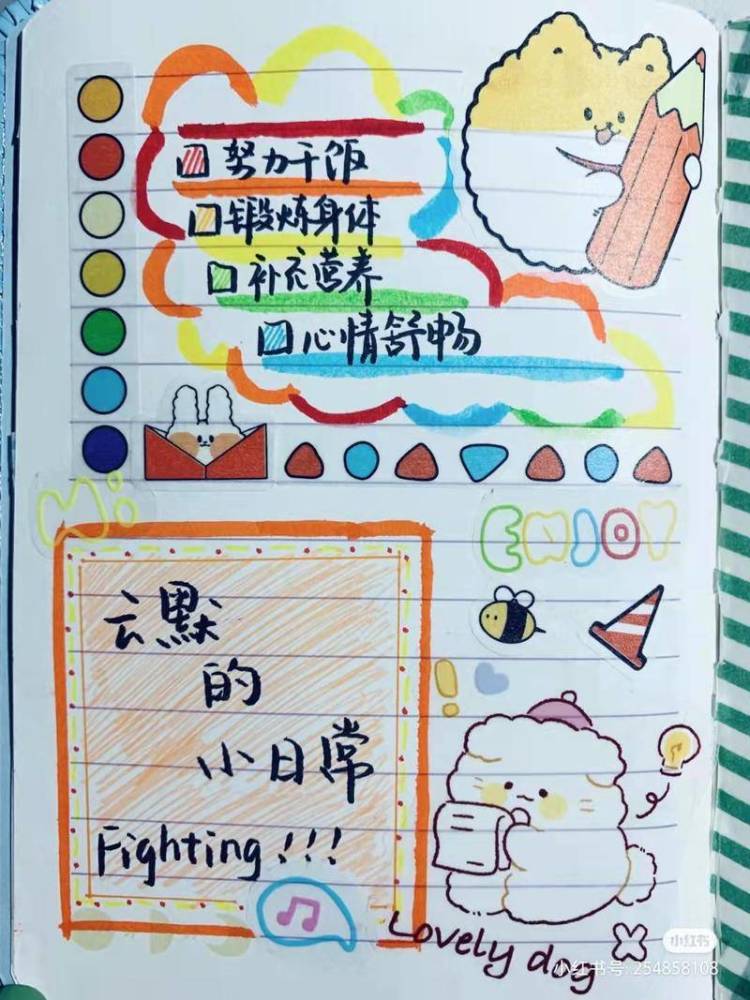 努力干饭
锻炼身体
补充营养
心情舒畅
Mi
ENJOY
云默
的
小日常
Fighting!!!
Lovely dog
小红书
小红书号: 254858108